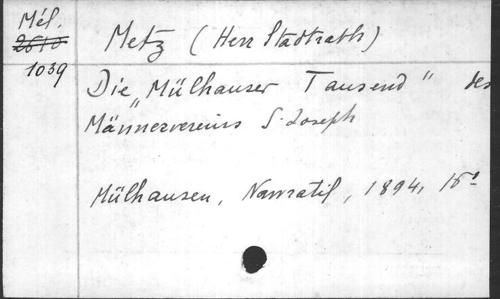 Mél.
2610
1039
Metz (Herr Stadtrath)
Die „Mülhauser Tausend" des
Männervereins S. Joseph
Mülhausen, Nawratil, 1894, 16°